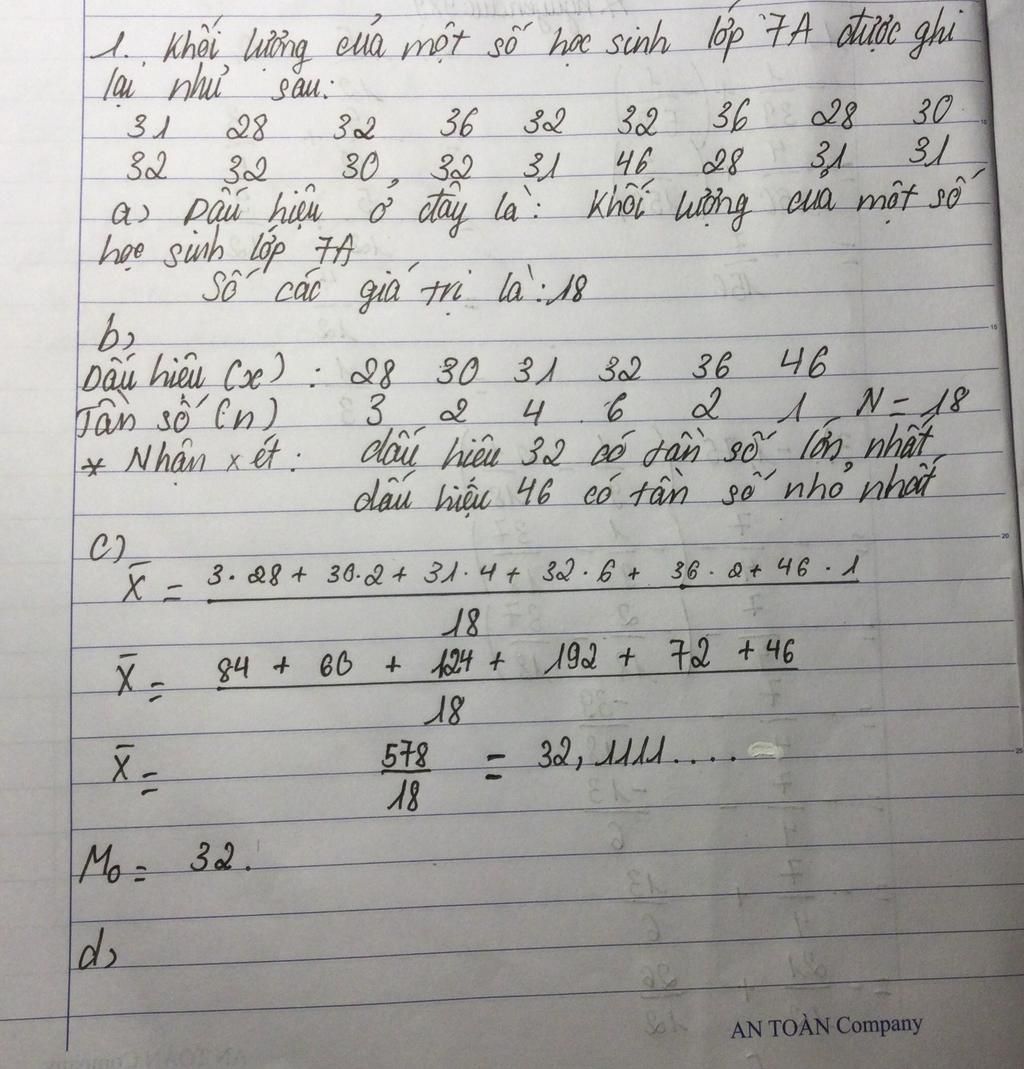 1. Khối lượng của một số học sinh lớp 7A được ghi
lại như sau:
31 28 32 36 32 32 36 28 30
32 32 30, 32 31 46 28 31 31
a) Dấu hiệu ở đây là: Khối lượng của một số
học sinh lớp 7A
Số các giá trị là: 18
b)
Dấu hiệu (x) : 28 30 31 32 36 46
Tần số (n) 3 2 4 6 2 1 N = 18
* Nhận xét: dấu hiệu 32 có tần số lớn nhất
dấu hiệu 46 có tần số nhỏ nhất
c)
X̄ = (3·28 + 30·2 + 31·4 + 32·6 + 36·2 + 46·1)
18
X̄ = 84 + 60 + 124 + 192 + 72 + 46
18
X̄ = 578/18 = 32,1111....
M₀ = 32.
d)
AN TOÀN Company